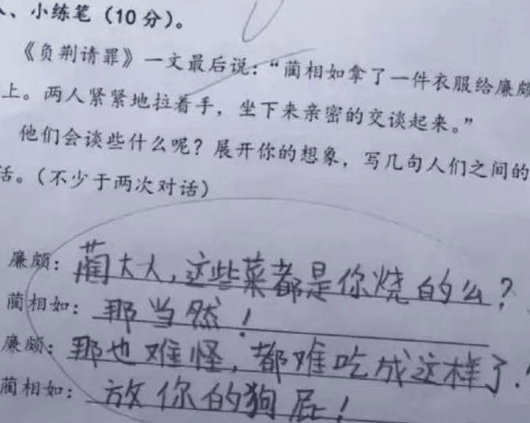 、小练笔(10分)。
《负荆请罪》一文最后说:“蔺相如拿了一件衣服给廉颇
上。两人紧紧地拉着手,坐下来亲密的交谈起来。”
他们会谈些什么呢?展开你的想象,写几句人们之间的
话。(不少于两次对话)
廉颇:蔺大大,这些菜都是你烧的么?
蔺相如:那当然!
廉颇:那也难怪,都难吃成这样了!
蔺相如:放你的狗屁!